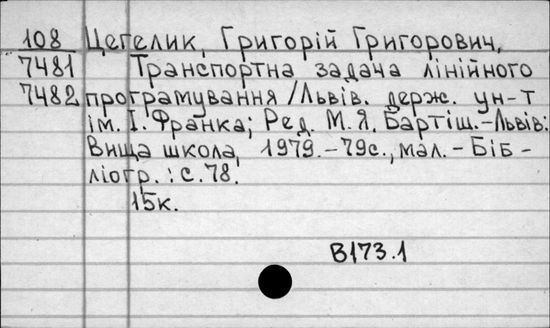 108 Цегелик, Григорій Григорович,
7481 Транспортна задача лінійного
7482 програмування/Львів. держ. ун-т
ім. І. Франка; Ред. М.Я. Бартіш.-Львів:
Вища школа, 1979.-79с., мал.-Біб-
ліогр.: с.78.
15к.
В173.1